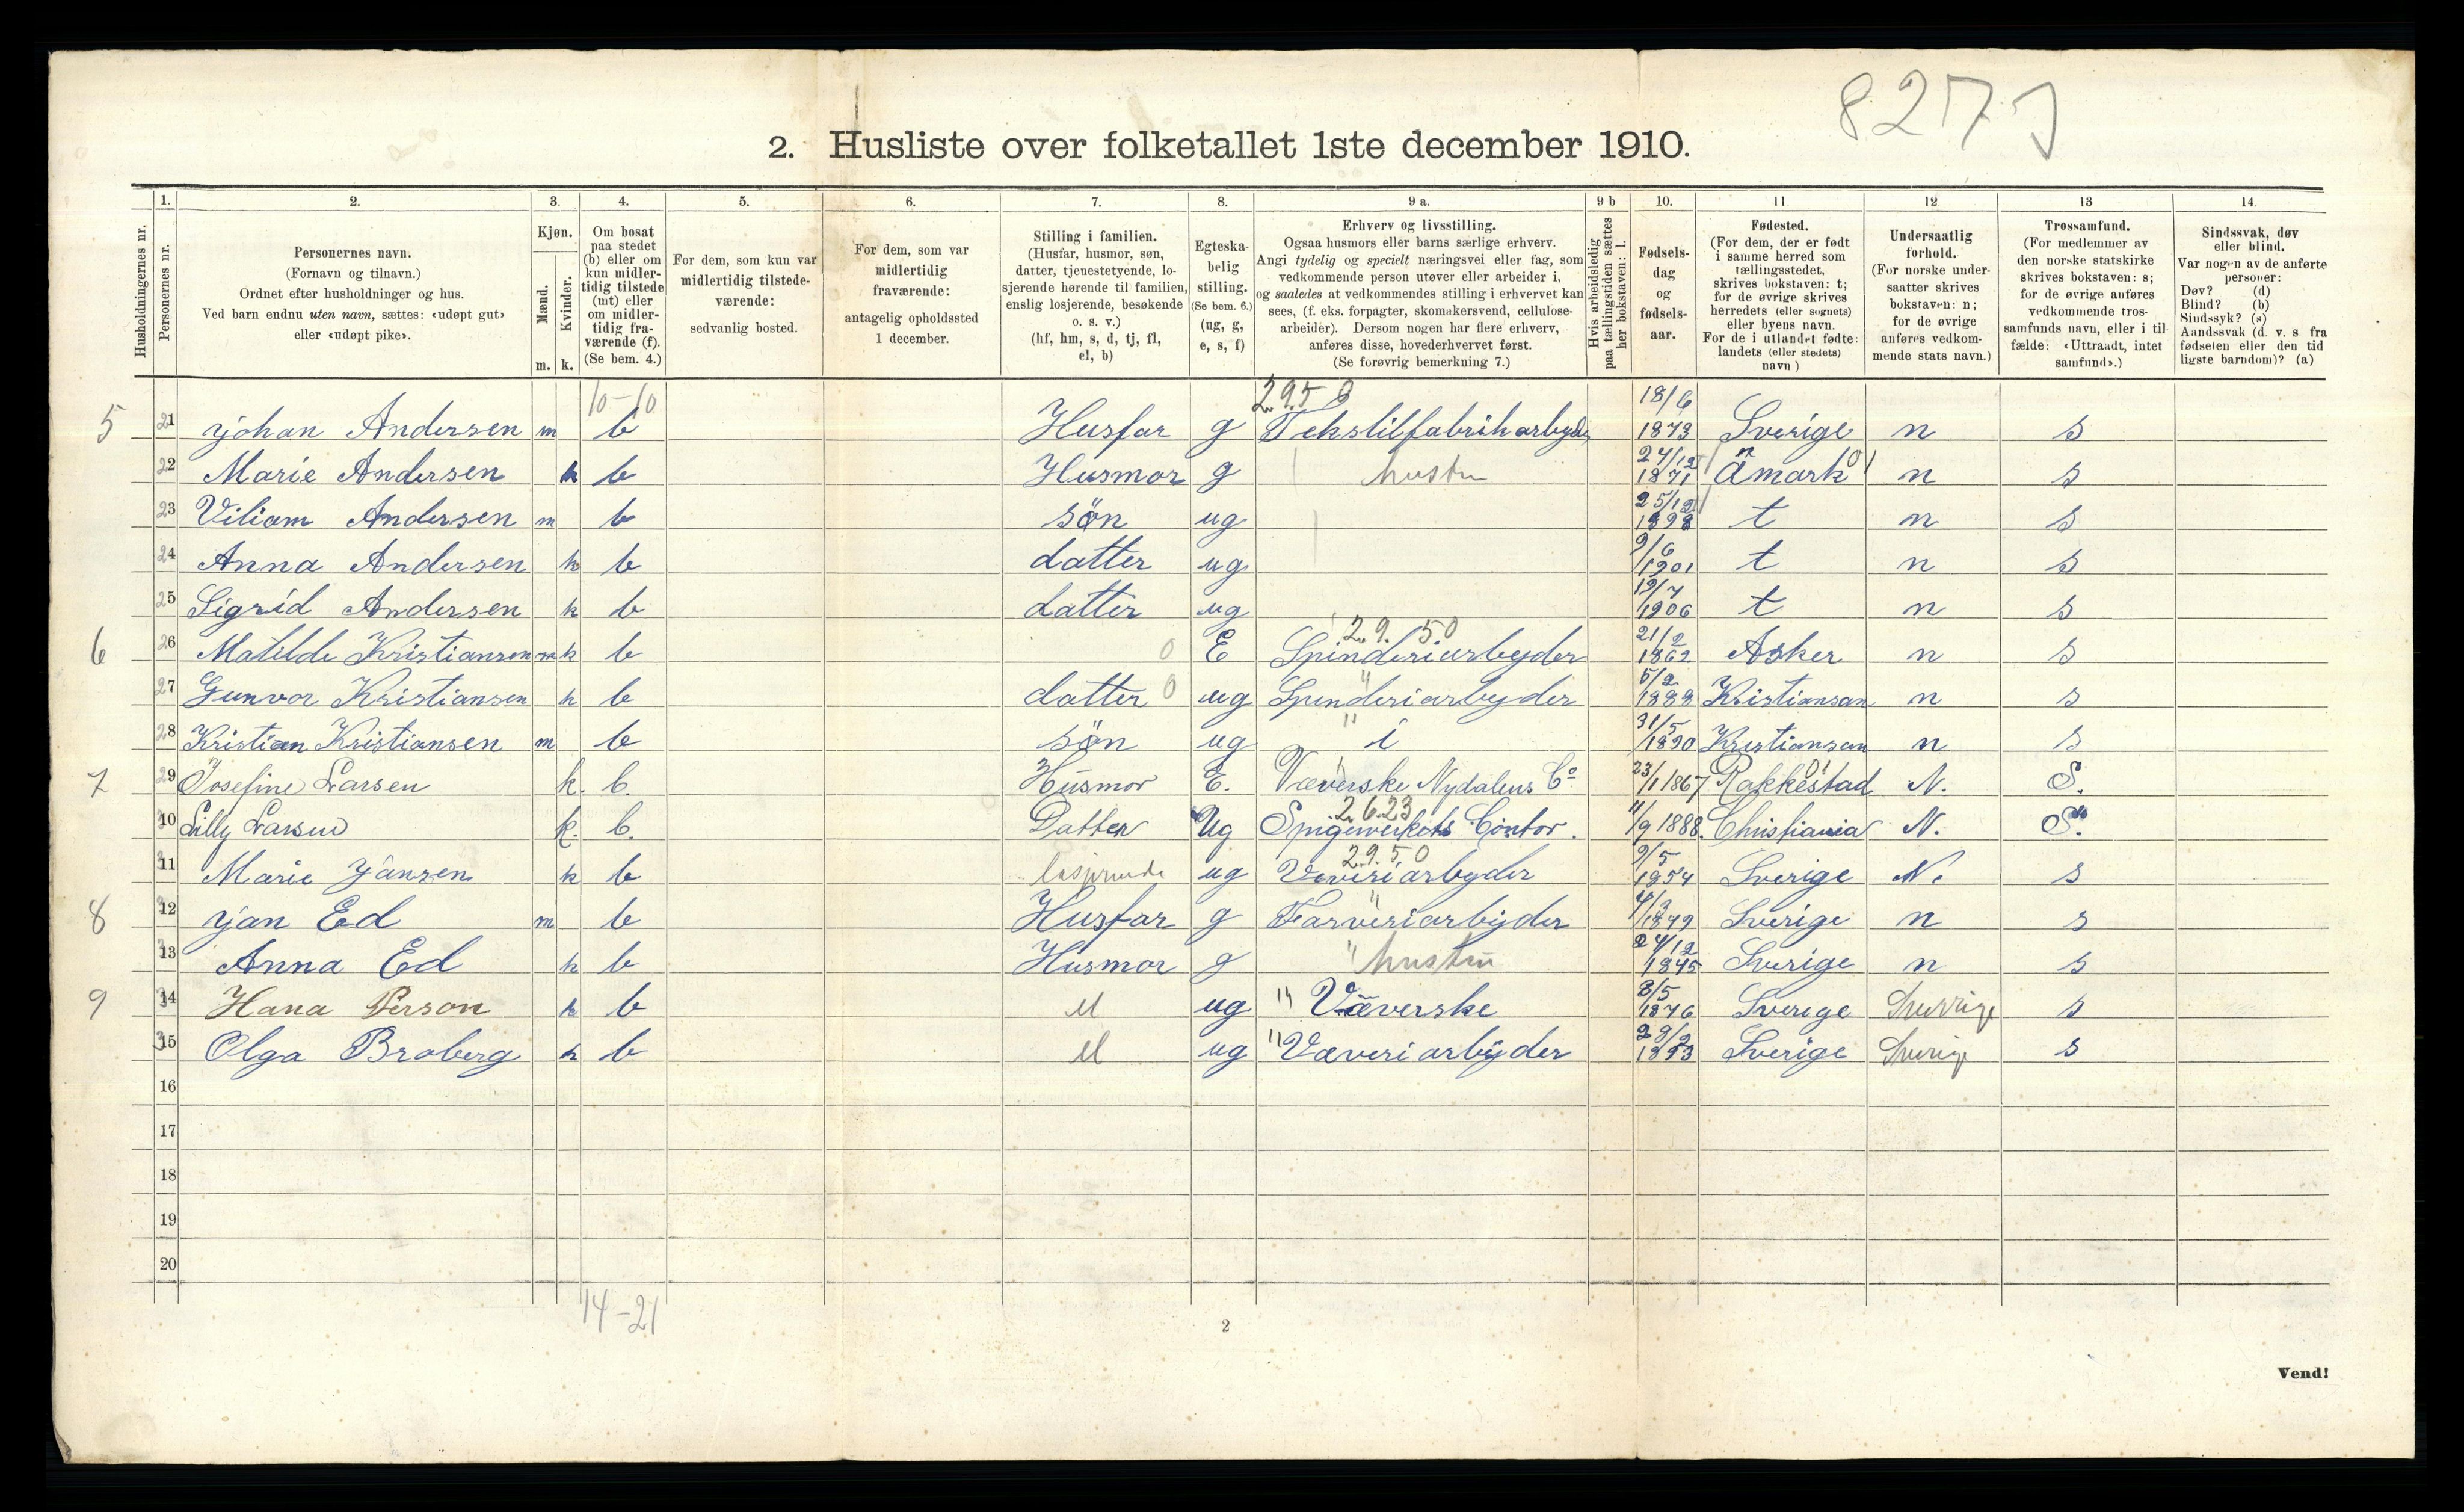 827J
2. Husliste over folketallet 1ste december 1910.
Husholdningernes nr.
1. Personernes nr.
2. Personernes navn.
(Fornavn og tilnavn.)
Ordnet efter husholdninger og hus.
Ved barn endnu uten navn, sættes: «udøpt gut»
eller «udøpt pike».
3. Kjøn.
Mænd. Kvinder.
m. k.
4. Om bosat
paa stedet
(b) eller om
kun midler-
tidig tilstede
(mt) eller
om midler-
tidig fra-
værende (f).
(Se bem. 4.)
5. For dem, som kun var
midlertidig tilstede-
værende:
sedvanlig bosted.
6. For dem, som var
midlertidig
fraværende:
antagelig opholdssted
1 december.
7. Stilling i familien.
(Husfar, husmor, søn,
datter, tjenestetyende, lo-
sjerende hørende til familien,
enslig losjerende, besøkende
o. s. v.)
(hf, hm, s, d, tj, fl,
el, b)
8. Egteska-
belig
stilling.
(Se bem. 6.)
(ug, g,
e, s, f)
9 a. Erhverv og livsstilling.
Ogsaa husmors eller barns særlige erhverv.
Angi tydelig og specielt næringsvei eller fag, som
vedkommende person utøver eller arbeider i,
og saaledes at vedkommendes stilling i erhvervet kan
sees, (f. eks. forpagter, skomakersvend, cellulose-
arbeider). Dersom nogen har flere erhverv,
anføres disse, hovederhvervet først.
(Se forøvrig bemerkning 7.)
9 b Hvis arbeidsledig
paa tællingstiden sættes
her bokstaven: l.
10. Fødsels-
dag
og
fødsels-
aar.
11. Fødested.
(For dem, der er født
i samme herred som
tællingsstedet,
skrives bokstaven: t;
for de øvrige skrives
herredets (eller sognets)
eller byens navn.
For de i utlandet fødte:
landets (eller stedets)
navn)
12 Undersaatlig
forhold.
(For norske under-
saatter skrives
bokstaven: n;
for de øvrige
anføres vedkom-
mende stats navn.)
13 Trossamfund.
(For medlemmer av
den norske statskirke
skrives bokstaven: s;
for de øvrige anføres
vedkommende tros-
samfunds navn, eller i til
fælde: «Uttraadt, intet
samfund».)
14. Sindssvak, døv
eller blind.
Var nogen av de anførte
personer:
Døv? (d)
Blind? (b)
Sindssyk? (s)
Aandssvak (d. v. s. fra
fødselen eller den tid
ligste barndom)? (a)
10-10 2.9.5 0 18/6
5 21 Johan Andersen m b Husfar g Tekstilfabrikarbyder 1873 Sverige n s
22 Marie Andersen k b Husmor g hustru 24/12 1871 Åmark n s
23 Viliam Andersen m b sön ug 25/12 1898 t n s
24 Anna Andersen k b datter ug 9/6 1901 t n s
25 Sigrid Andersen k b datter ug 19/7 1906 t n s
2.9. 50
6 26 Matilde Kristiansen k b 0 E Spinderiarbyder 21/2 1862 Asker n s
27 Gunvor Kristiansen k b datter 0 ug Spinderiarbyder 5/2 1888 Kristiansan n s
28 Kristian Kristiansen m b sön ug " i 31/5 1890 Kristiansan n s
7 29 Josefine Larsen k. b. Husmor E. Væverske Nydalens Co 23/1 1867 Rakkestad N. S.
2.6.23
10 Lilly Larsen k. b. Datter Ug Spigerverkets Contor. 11/9 1888. Christiania N. S.
2.9.50
11 Marie Jansen k b losjerende ug Veveriarbyder 9/5 1854 Sverige N. s
8 12 Jan Ed m b Husfar g Farveriarbyder 1849 Sverige n s
13 Anna Ed k b Husmor g " hustru 24/12 1845 Sverige n s
9 14 Hana Person k b el ug " Væverske 8/5 1876 Sverige Sverrige s
15 Olga Broberg k b el ug " Væveriarbyder 28/2 1893 Sverige Sverige s
16
17
18
19
20
14-21
2
Vend!